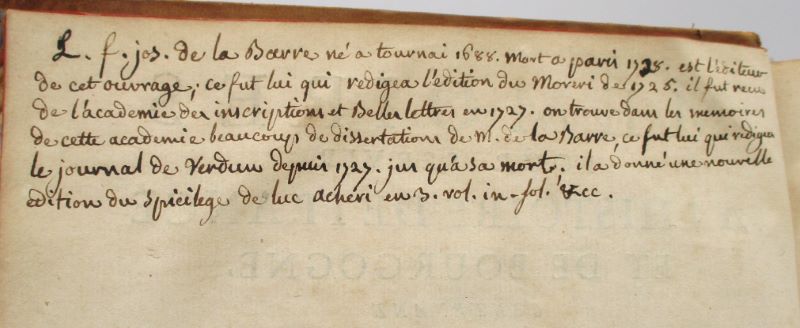 L. f. jos. de la Barre né a tournai 1688. Mort a paris 1738. est l'éditeur
de cet ouvrage, ce fut lui qui redigea l'edition du Moreri de 1725. il fut recu
de l'académie des inscriptions et Belles lettres en 1727. on trouve dans les memoires
de cette academie beaucoup de dissertations de M. de la Barre, ce fut lui qui redigea
le journal de Verdun depuis 1727. jus qu'a sa mort. il a donné une nouvelle
edition du spicilege de luc acheri en 3. vol. in-fol. &cc.
ET DE BOURGOGNE,